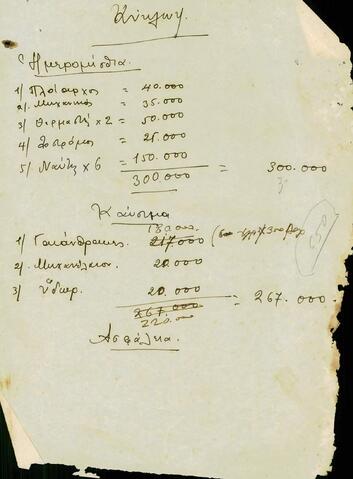 Κύκλωψ.
Ἡμερομίσθια.
1/ Πλοίαρχος = 40.000
2/ Μηχανικός = 35.000
3/ Θερμαστὴς x 2 = 50.000
4/ = 25.000
5/ Ναύτης x 6 = 150.000 = 300.000
300.000
Καύσιμα
180.000
1/ Γαιάνθρακες. 217.000
2/ Μηχανέλαιον. 20.000
3/ Ὕδωρ. 20.000
267.000 = 267.000.
220.000
Ἀσφάλεια.